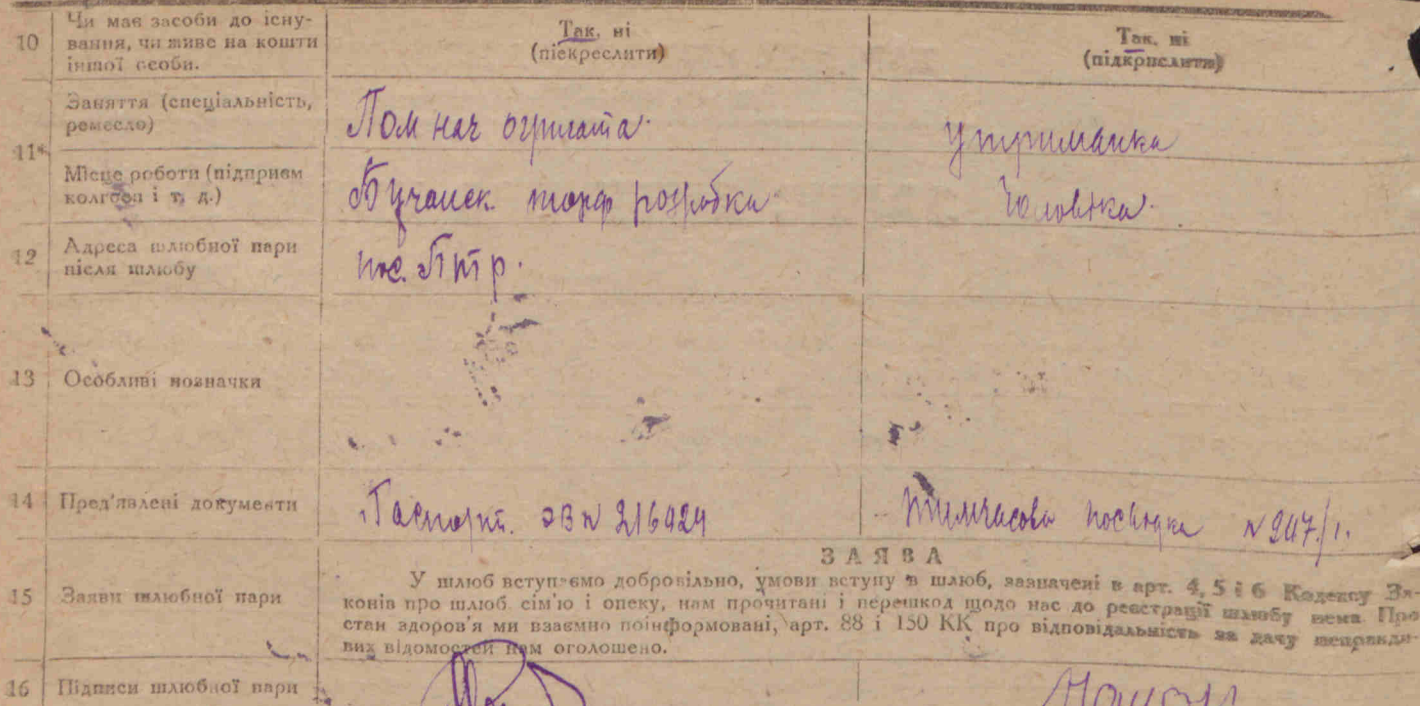 10 Чи має засоби до існу-
вання, чи живе на кошти
іншої особи.
Так, ні
(піекреслити)
Так, ні
(підкрислити)
11* Заняття (спеціальність,
ремесло)
Пом нач
Утриманка
Місце роботи (підприєм
колгосп і т. д.)
Бучанск торф розробка
Чоловіка
12 Адреса шлюбної пари
після шлюбу
пос. Птр.
13 Особливі позначки
14 Пред'явлені документи
Паспорт. ЭВ N 216424
тимчасова посвідка N 247/1.
15 Заяви шлюбної пари
ЗАЯВА
У шлюб вступаємо добровільно, умови вступу в шлюб, зазначені в арт. 4, 5 і 6 Кодексу За-
конів про шлюб сім'ю і опеку, нам прочитані і перешкод щодо нас до реєстрації шлюбу нема Про
стан здоров'я ми взаємно поінформовані, арт. 88 і 150 КК про відповідальність за дачу неправди-
вих відомостей нам оголошено.
16 Підписи шлюбної пари